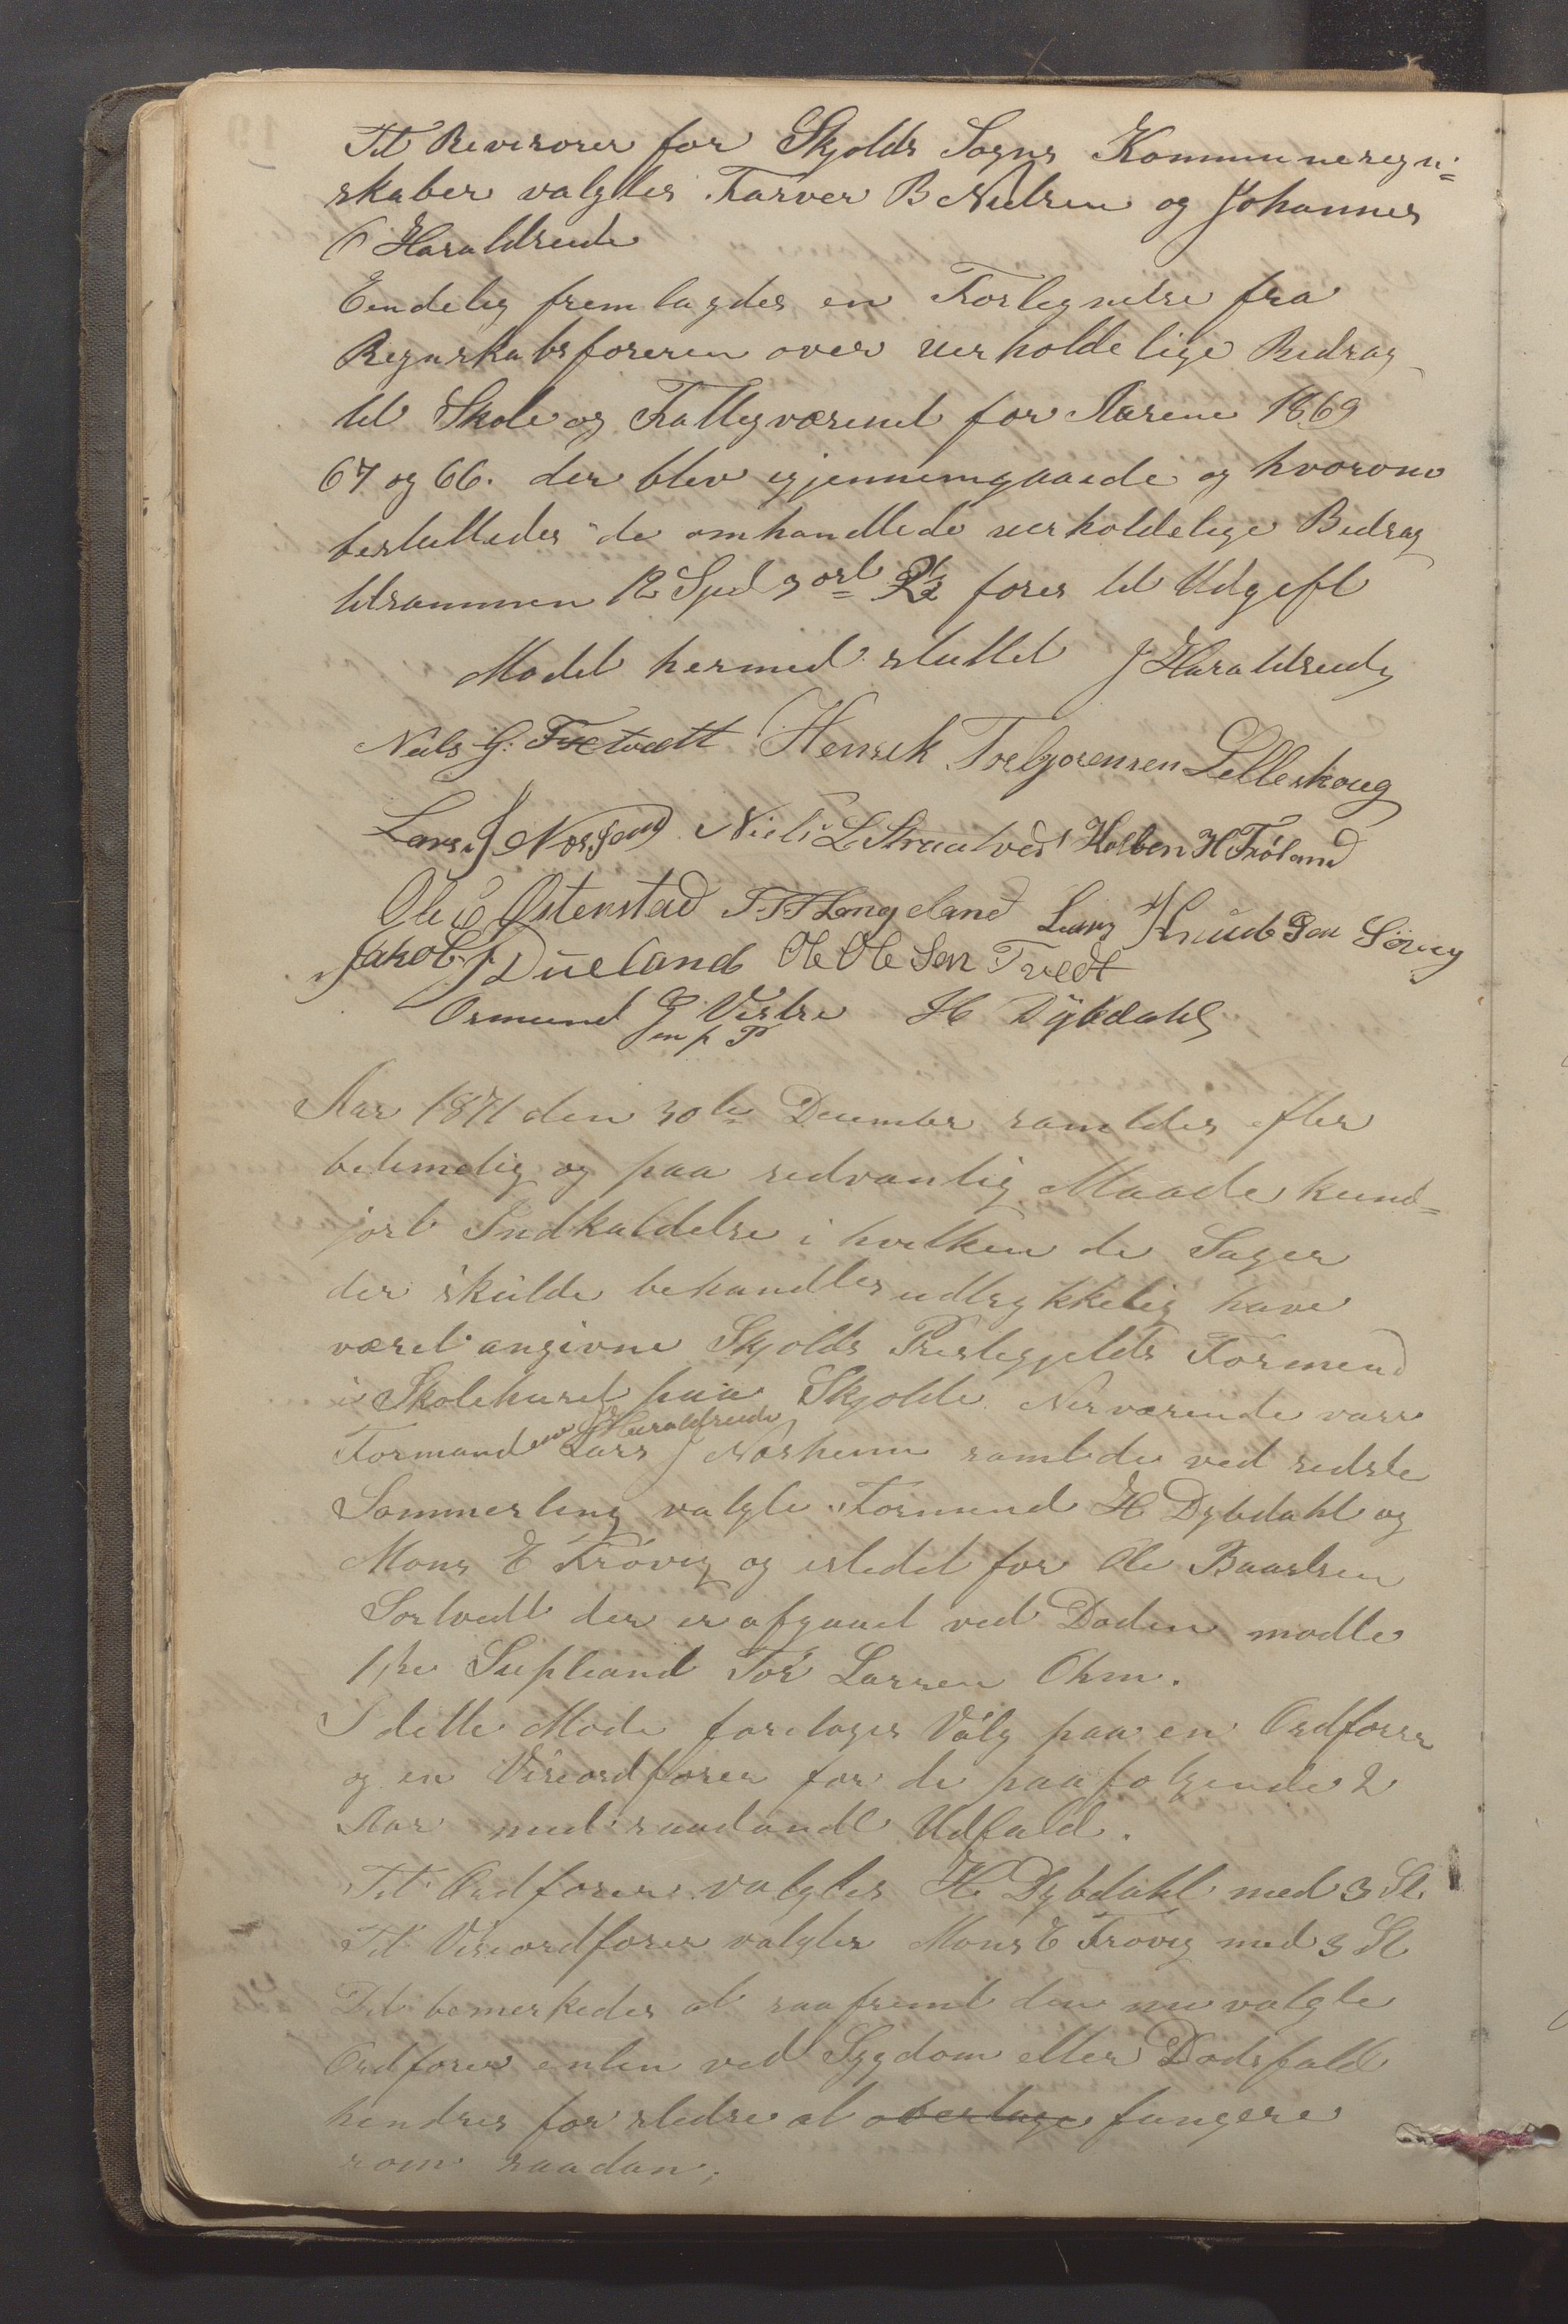 Til Revisorer for Skjolds Sogns Kommuneregn=
skaber valgtes Farver B Nielsen og Johannes
Haraldseide
Eendelig fremlagdes en Fortegnelse fra
Regnskabsføreren over uerholdelige Bidrag
til Skole og Fattigvæsenet for Aarene 1869
67 og 66. der blev igjennemgaaede og hvorom
besluttedes de omhandlede uerholdelige Bidrag
tilsammen 12 Spd 3 ort føres til Udgift
Mødet hermed sluttet J Haraldseide
Nils G. Henrik Torbjørensen Lilleskoug
Lars J Nils L Straatvedt Holben H Frøland
Ole Østenstad T.T. Langeland Lars Knudsen
Jakob J Dueland Ole Olesen Tvedt
Osmund G Vestre H Dybdahl
m p P
Aar 1871 den 30te December samledes efter
betimelig og paa sedvanlig Maade kund=
jort Indkaldelse i hvilken de Sager
der skulde behandles udtrykkelig have
været angivne Skjolds Prestegjelds Formend
i Skolehuset paa Skjolde. Nerværende vare
Formandene J Haraldseide Lars J Nørheim samt de ved sidste
Sommerting valgte Formend H Dybdahl og
Mons E Frøvig og istedet for Ole Baardsen
Sørtvedt der er afgaaet ved Døden mødte
1ste Supleand Tør Larsen Ohm.
I dette Møde foretoges Valg paa en Ordfører
og en Viseordfører for de paafølgende 2
Aar med saadandt Udfald.
Til Ordfører valgtes H. Dybdahl med 3 St.
Til Viseordfører valgtes Mons E Frøvig med 3 St
Det bemerkedes at saafremt den nu valgte
Ordfører enten ved Sygdom eller Dødsfald
hendres for sledse at overtage fungere
som saadan;